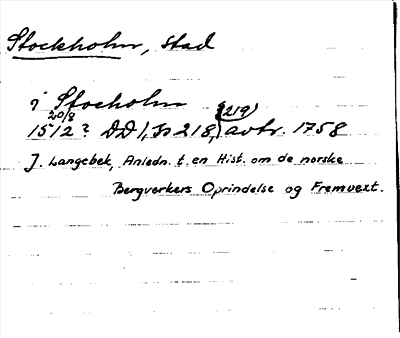 Stockholm, stad
i Stocholm
20/8 (219)
1512? DD 1, Is 218, avtr. 1758
J. Langebek, Anledn. t. en Hist. om de norske
Bergverkers Oprindelse og Fremvext.